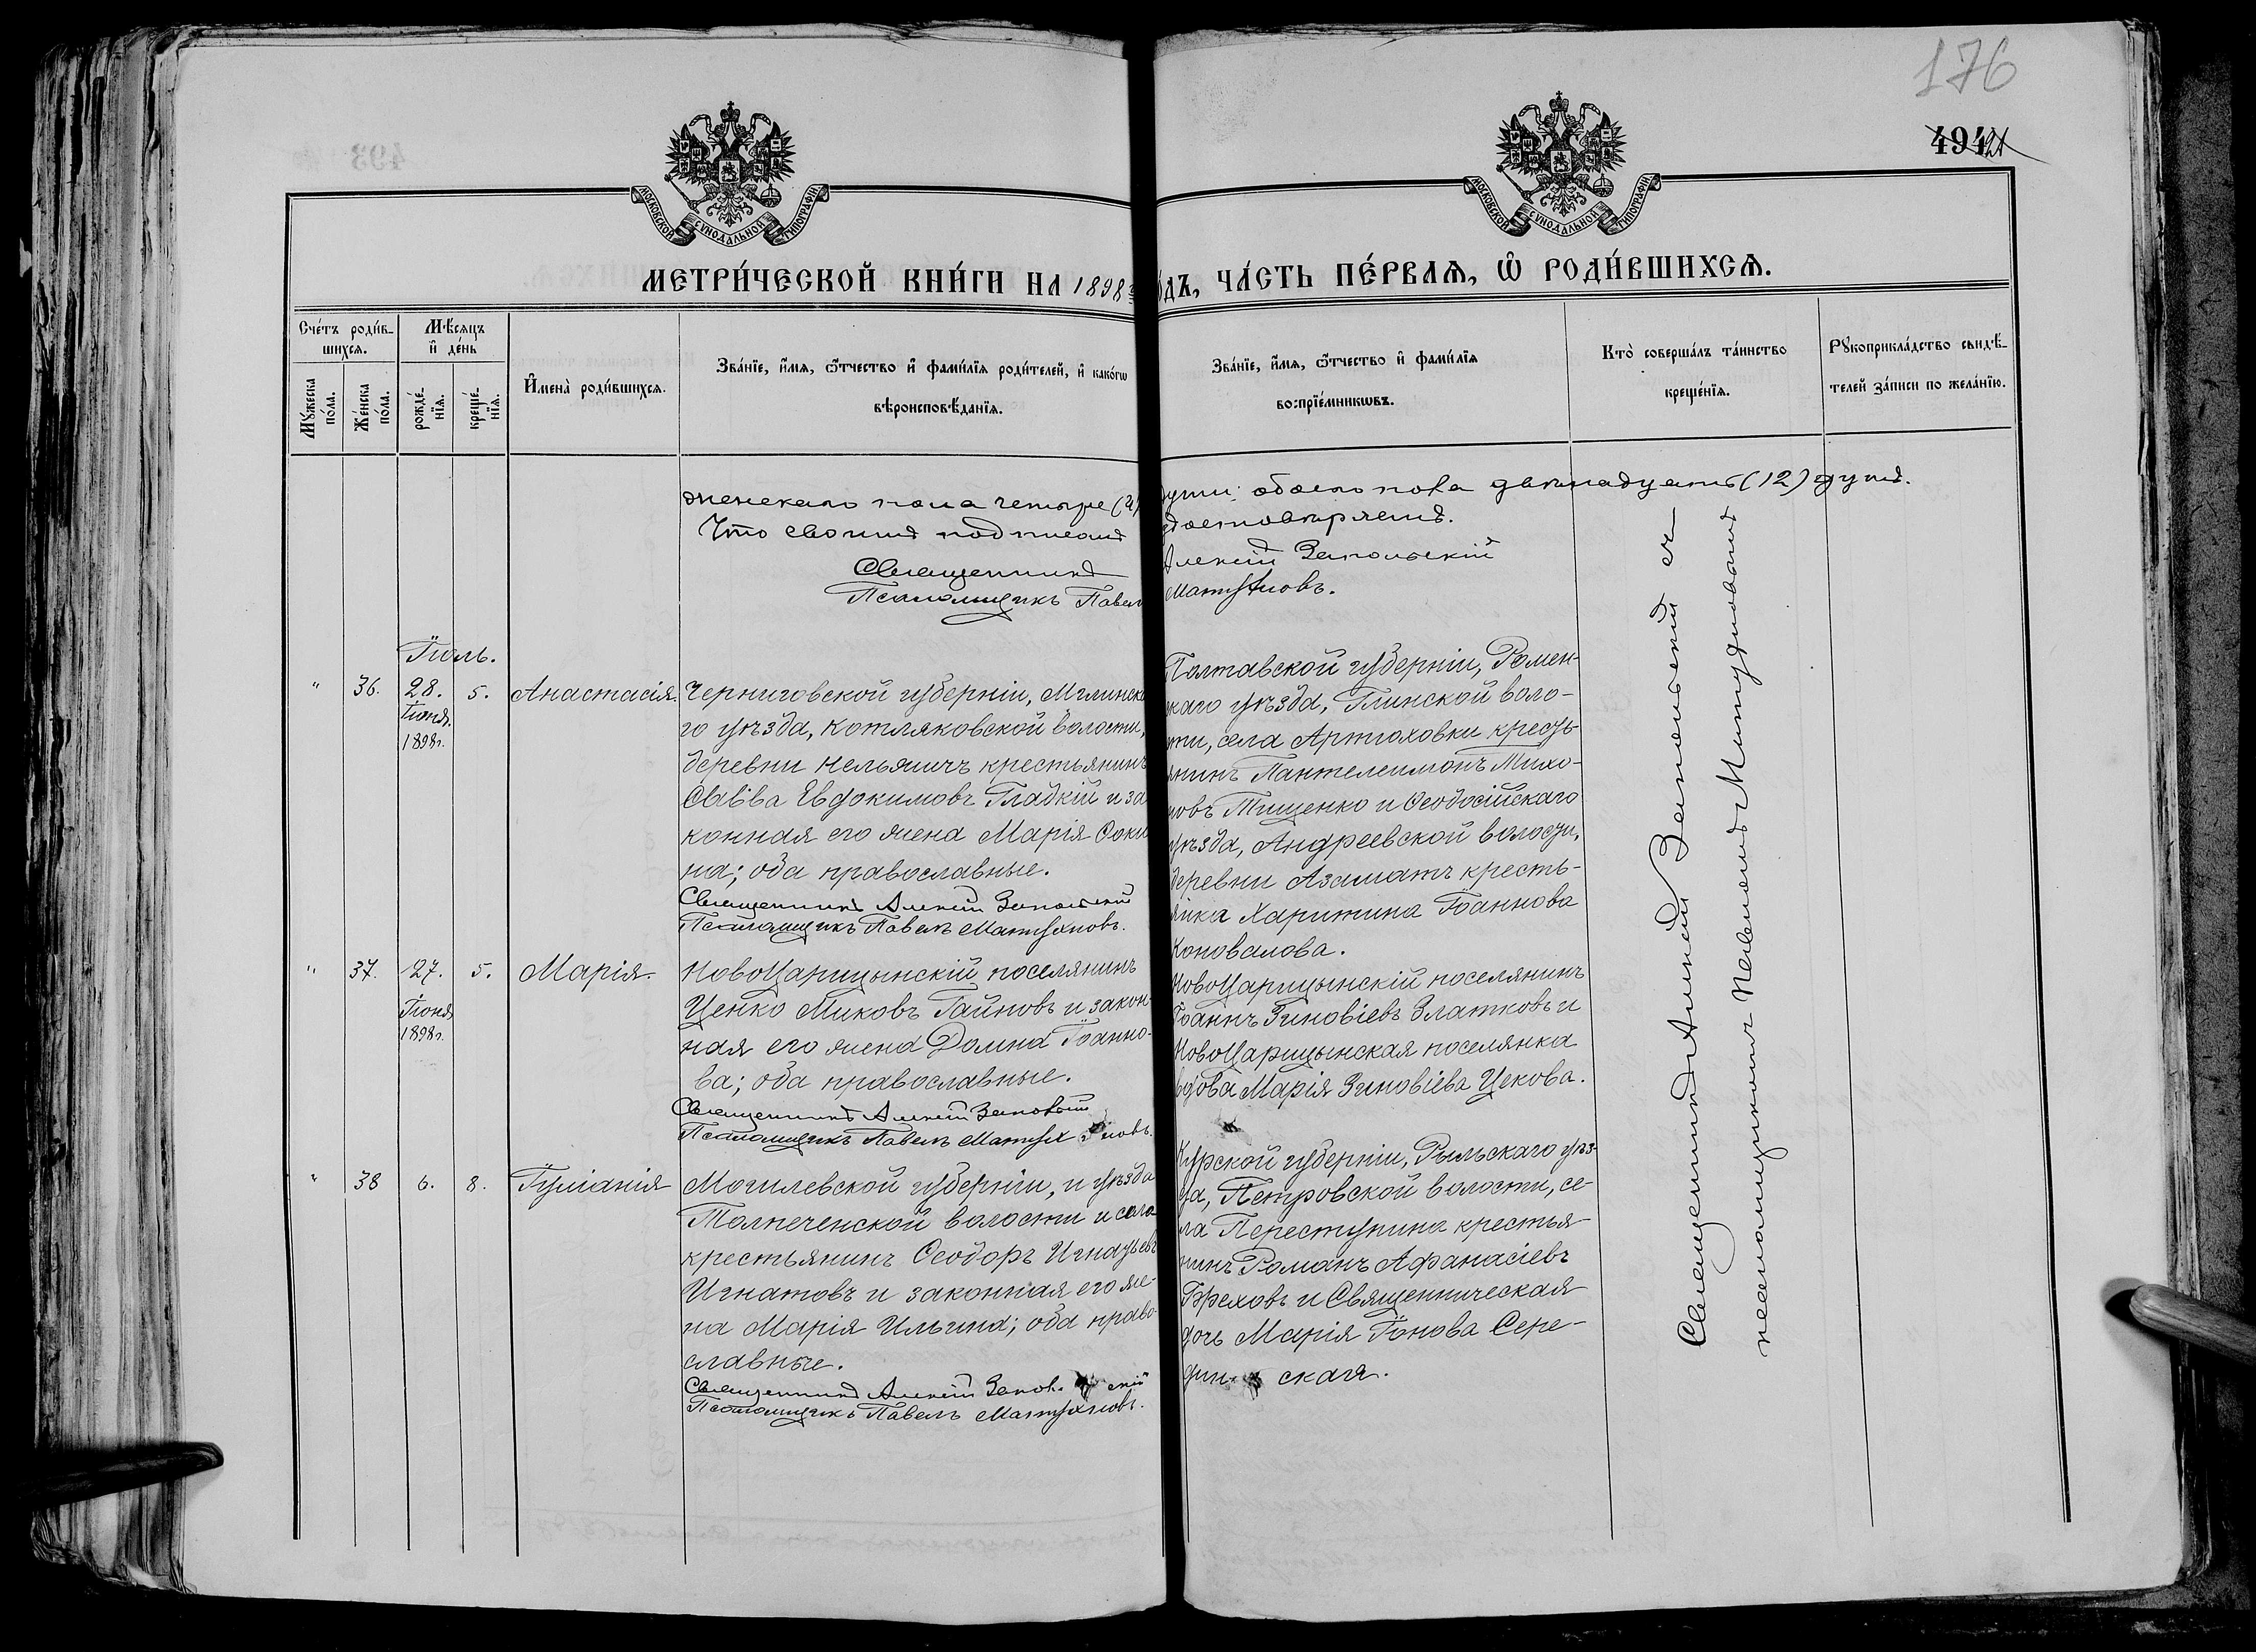 176
494
МОСКОВСКОЙ СѴНОДАЛЬНОЙ ТИПОГРАФІИ
МОСКОВСКОЙ СѴНОДАЛЬНОЙ ТИПОГРАФІИ
МЕТРИ́ЧЕСКОЙ КНИ́ГИ НА 1898
ѻ́дъ, ЧА́СТЬ ПЕ́РВАѦ, Ѽ РОДИ́ВШИХСѦ.
Сче́тъ роди́в-
шихсѧ.
Мѣсѧцъ
и҆ де́нь
Мꙋжеска
по́ла.
Же́нска
по́ла.
рожде́-
нїѧ.
креще́-
нїѧ.
И҆мена̀ роди́вшихсѧ.
Зва́нїе, и҆́мѧ, ѻ҆́тчество и҆ фами́лїѧ роди́телей, и҆ како́гѡ
вѣроисповѣ́данїѧ.
Зва́нїе, и҆́мѧ, ѻ҆́тчество и҆ фами́лїѧ
воспрїе́мникѡвъ.
Кто̀ соверша́лъ та́инство
креще́нїѧ.
Рꙋкоприкла́дство свидѣ́-
телей за́писи по жела́нїю.
женскаго пола четыре (4)
Что своимъ подписомъ
Священникъ
Псаломщикъ Павелъ
души; обоего пола двенадцать (12) душъ.
достовѣряемъ.
Алексій Запольскій
Матуяновъ.
Іюль.
" 36. 28. 5. Анастасія.
Іюня.
1898г.
Черниговской губерніи, Мглинска
го уѣзда, Котляковской волости,
деревни Нельячичъ крестьянинъ
Савва Евдокимовъ Гладкій и за
конная его жена Марія Фоки
на; оба православные.
Священникъ Алексій Запольскій
Псаломщикъ Павелъ Матуяновъ.
Полтавской губерніи, Ромен-
скаго уѣзда, Глинской воло-
сти, села Артюховки кресть-
янинъ Пантелеимонъ Михо-
новъ Тищенко и Ѳеодосійскаго
уѣзда, Андреевской волости,
деревни Азаматъ кресть-
янка Харитина Іоаннова
Коновалова.
" 37. 27. 5. Марія.
Іюня
1898г.
НовоЦарицынскій поселянинъ
Ценко Миковъ Гайновъ и закон-
ная его жена Домна Іоанно-
ва; оба православные.
Священникъ Алексій Запольскій
Псаломщикъ Павелъ Матуяновъ.
НовоЦарицынскій поселянинъ
Іоаннъ Зиновіевъ Златковъ и
НовоЦарицынская поселянка
вдова Марія Зиновіева Цекова.
" 38 6. 8. Іуліанія
Могилевской губерніи, и уѣзда
Толпеченской волости и села
крестьянинъ Ѳеодоръ Игнатьевъ
Игнатовъ и законная его же-
на Марія Ильина; оба право-
славные.
Священникъ Алексій Запольскій
Псаломщикъ Павелъ Матуяновъ.
Курской губерніи, Рыльскаго уѣз-
да, Петровской волости, се-
ла Переступина крестья-
нинъ Романъ Афанасіевъ
Бреховъ и Священническая
дочь Марія Іонова Сере-
динская.
Священникъ Алексій Запольскій съ
псаломщикомъ Павломъ